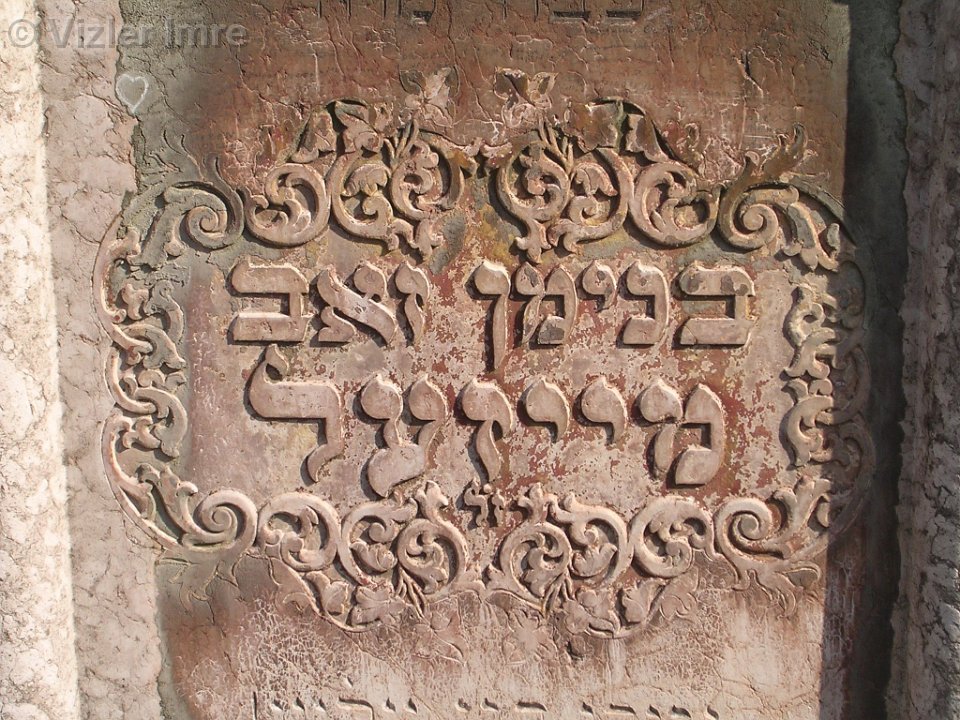 © Vizler Imre
בנימן זאב
מייזעל
ז״ל